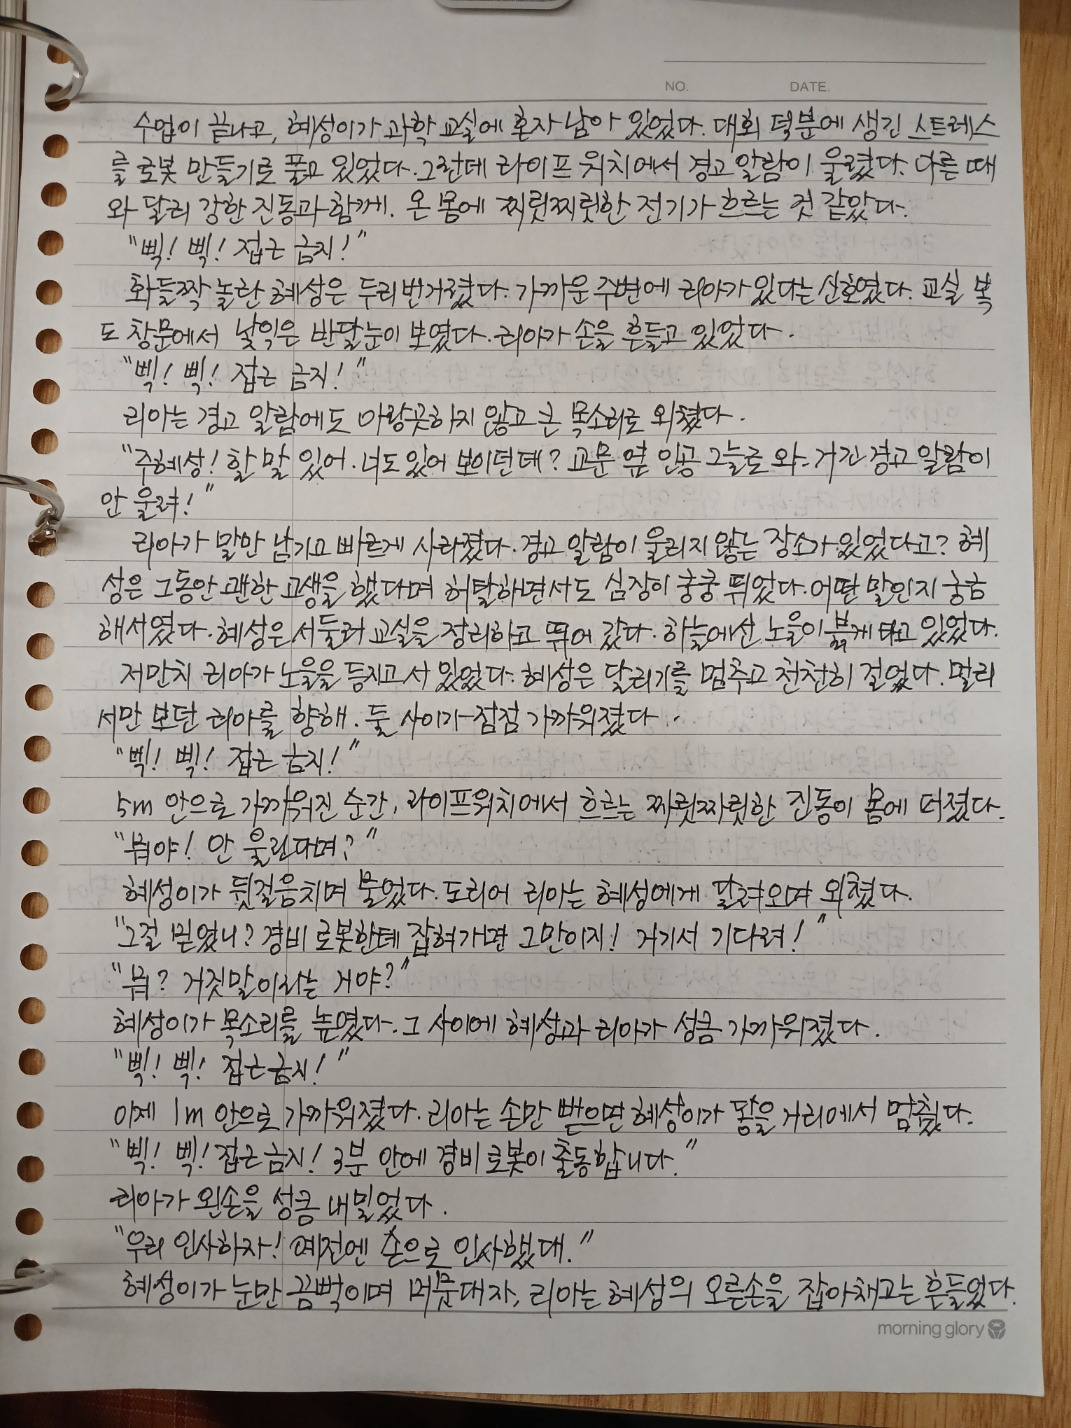 NO. DATE.
수업이 끝나고, 혜성이가 과학 교실에 혼자 남아 있었다. 대회 덕분에 생긴 스트레스
를 로봇 만들기로 풀고 있었다. 그런데 라이프 워치에서 경고 알람이 울렸다. 다른 때
와 달리 강한 진동과 함께. 온 몸에 찌릿찌릿한 전기가 흐르는 것 같았다.
"삑! 삑! 접근 금지!"
화들짝 놀란 혜성은 두리번거렸다. 가까운 주변에 리아가 있다는 신호였다. 교실 복
도 창문에서 낯익은 반달눈이 보였다. 리아가 손을 흔들고 있었다.
"삑! 삑! 접근 금지!"
리아는 경고 알람에도 아랑곳하지 않고 큰 목소리로 외쳤다.
"주혜성! 할 말 있어. 너도 있어 보이던데? 교문 옆 인공 그늘로 와. 거긴 경고 알람이
안 울려!"
리아가 말만 남기고 빠르게 사라졌다. 경고 알람이 울리지 않는 장소가 있었다고? 혜
성은 그동안 괜한 고생을 했다며 허탈하면서도 심장이 쿵쿵 뛰었다. 어떤 말인지 궁금
해서였다. 혜성은 서둘러 교실을 정리하고 뛰어 갔다. 하늘에선 노을이 붉게 타고 있었다.
저만치 리아가 노을을 등지고 서 있었다. 혜성은 달리기를 멈추고 천천히 걸었다. 멀리
서만 보던 리아를 향해. 둘 사이가 점점 가까워졌다.
"삑! 삑! 접근 금지!"
5m 안으로 가까워진 순간, 라이프워치에서 흐르는 찌릿찌릿한 진동이 몸에 퍼졌다.
"뭐야! 안 울린다며?"
혜성이가 뒷걸음치며 물었다. 도리어 리아는 혜성에게 달려오며 외쳤다.
"그걸 믿었니? 경비 로봇한테 잡혀가면 그만이지! 거기서 기다려!"
"뭐? 거짓말이라는 거야?"
혜성이가 목소리를 높였다. 그 사이에 혜성과 리아가 성큼 가까워졌다.
"삑! 삑! 접근 금지!"
이제 1m 안으로 가까워졌다. 리아는 손만 뻗으면 혜성이가 닿을 거리에서 멈췄다.
"삑! 삑! 접근 금지! 3분 안에 경비 로봇이 출동합니다."
리아가 왼손을 성큼 내밀었다.
"우리 인사하자! 예전엔 손으로 인사했대."
혜성이가 눈만 끔벅이며 머뭇대자, 리아는 혜성의 오른손을 잡아채고는 흔들었다.
morning glory